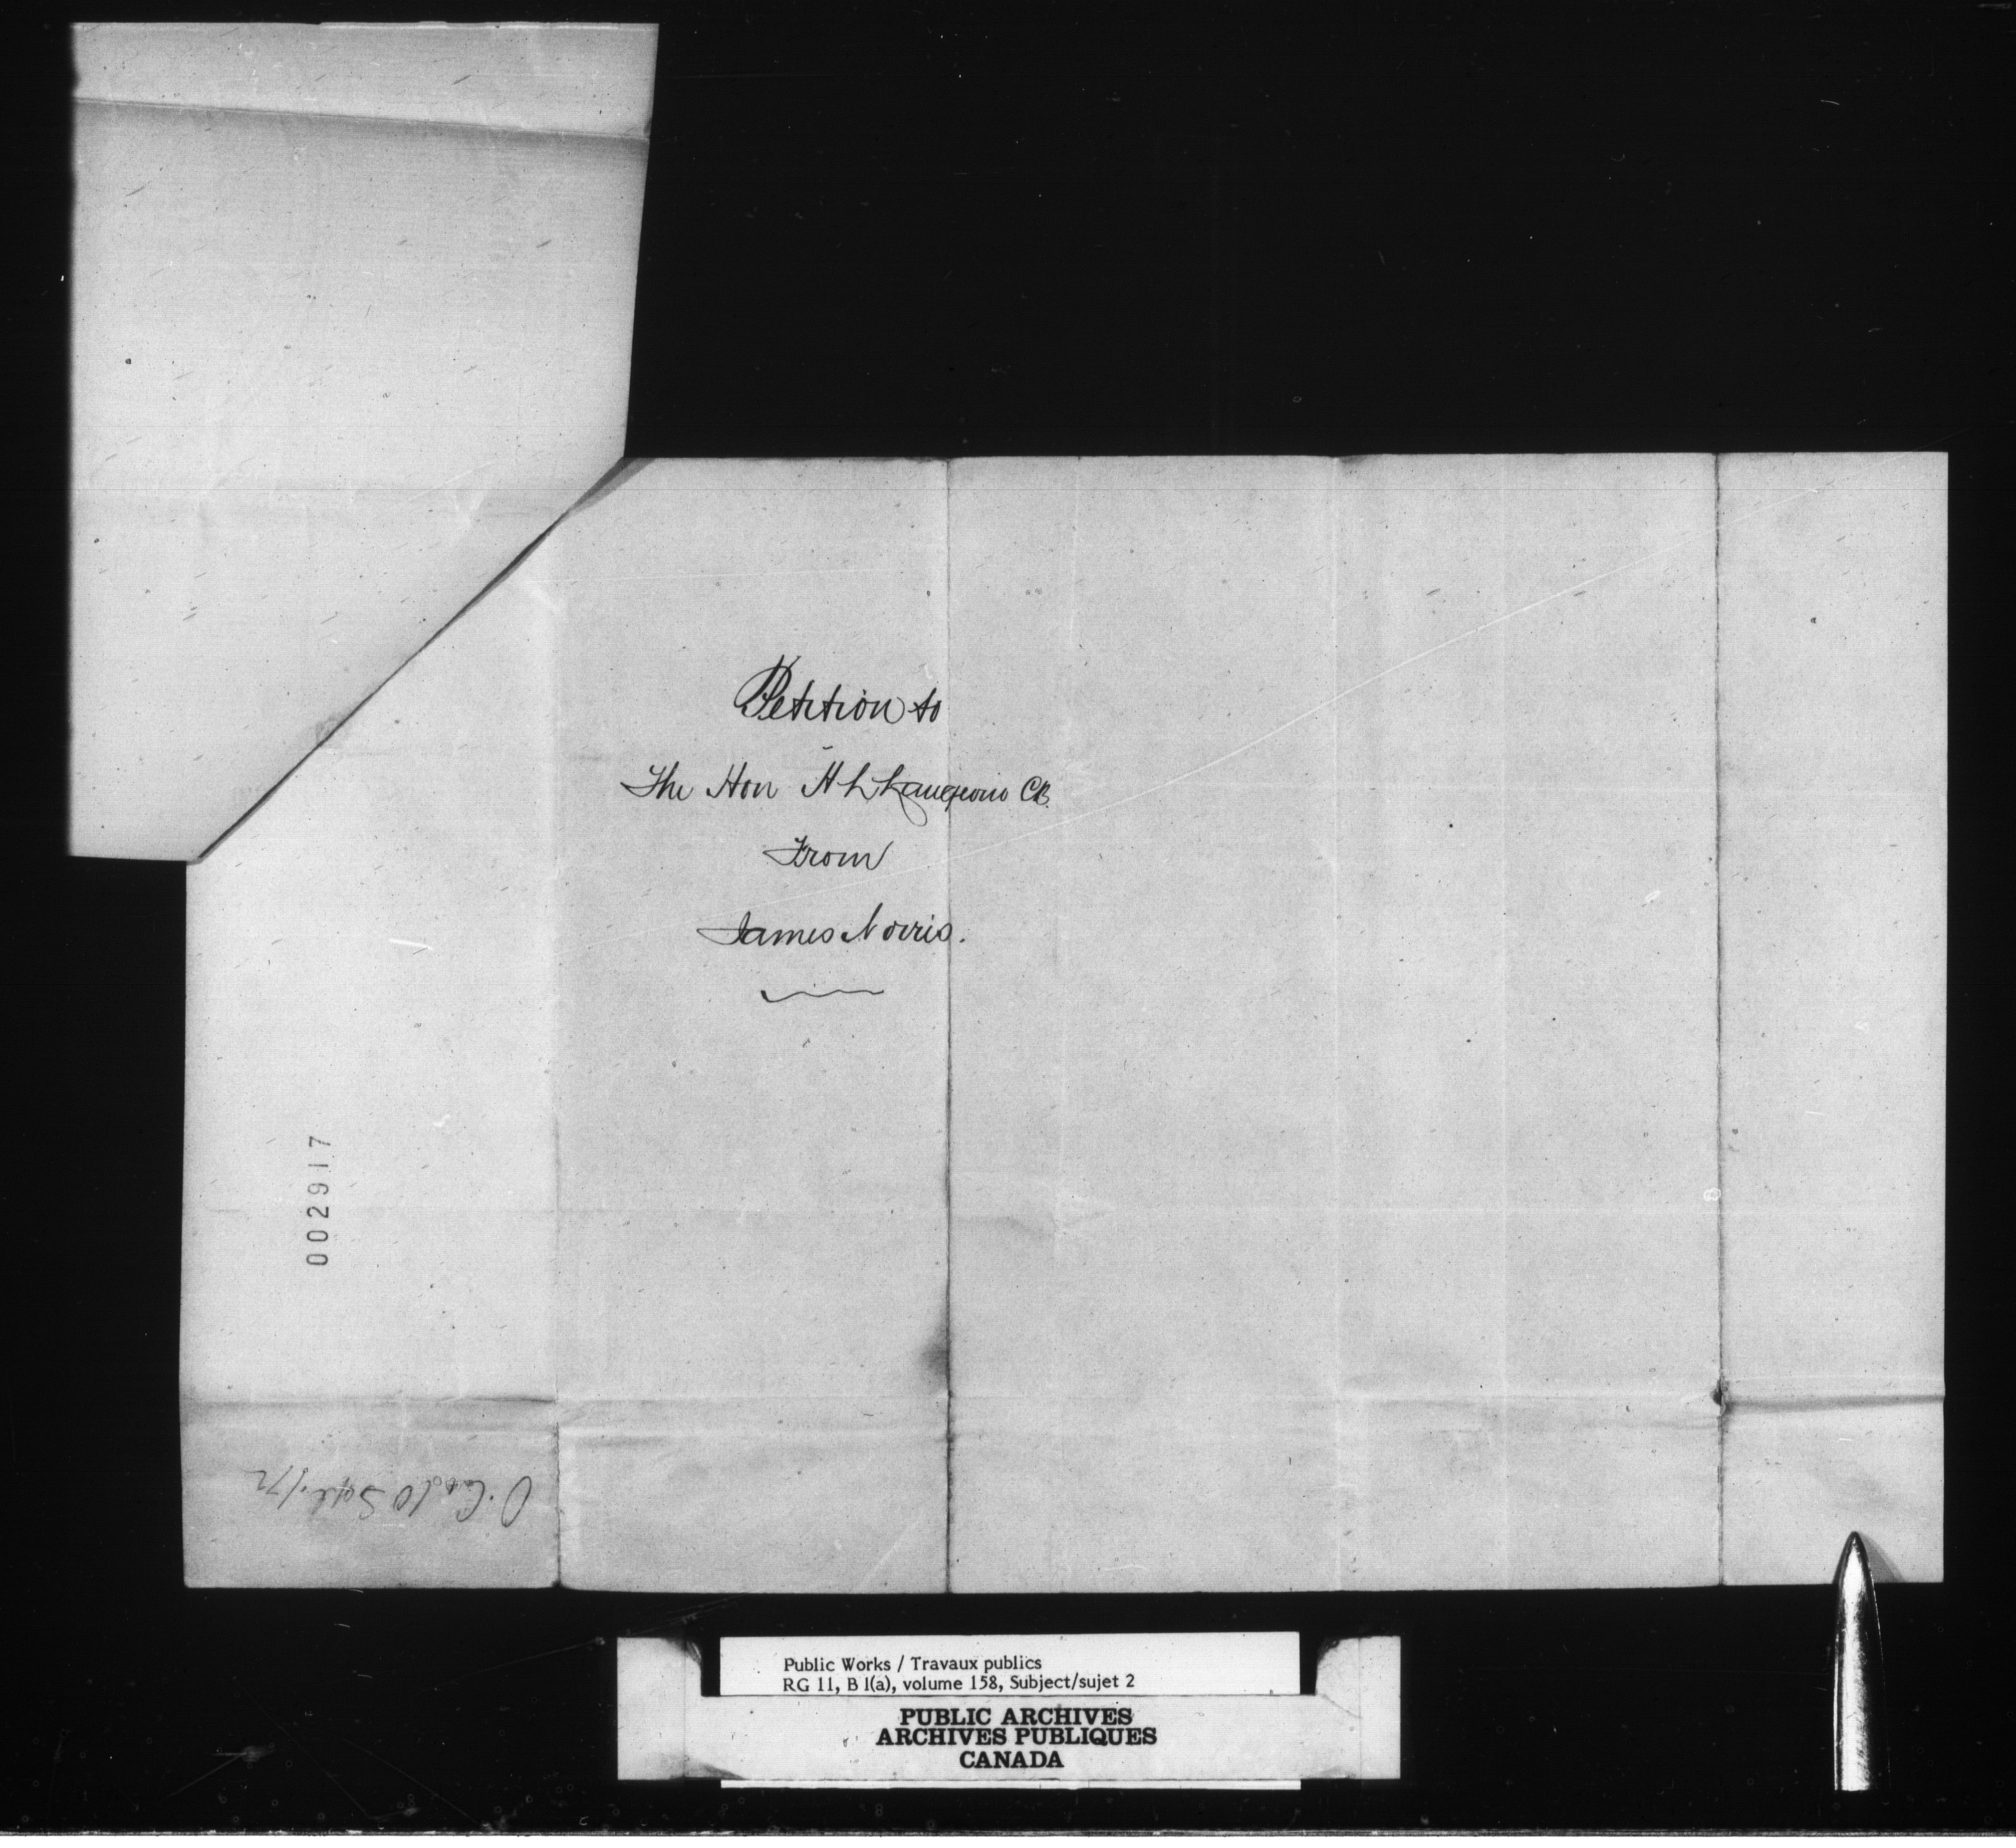 Petition to
The Hon H L Langevin CB.
From
James Norris.
002917
Sept. /72
Public Works / Travaux publics
RG 11, B 1(a), volume 158, Subject/sujet 2
PUBLIC ARCHIVES
ARCHIVES PUBLIQUES
CANADA